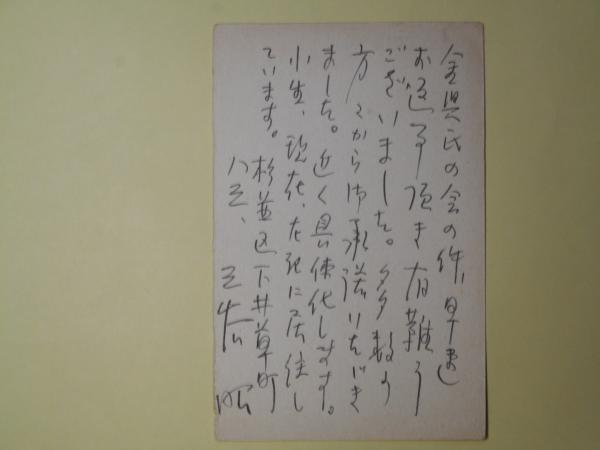 金貝氏の会の件、早速
お返事頂き有難う
ございました。多数の
方々から御承諾いただき
ました。近く具体化します。
小生、現在、左記に居住し
ています。
杉並区下井草町
八三、
三好 昭